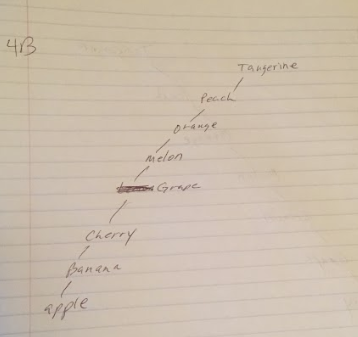 4B
Tangerine
Peach
orange
melon
Grape
Cherry
Banana
apple